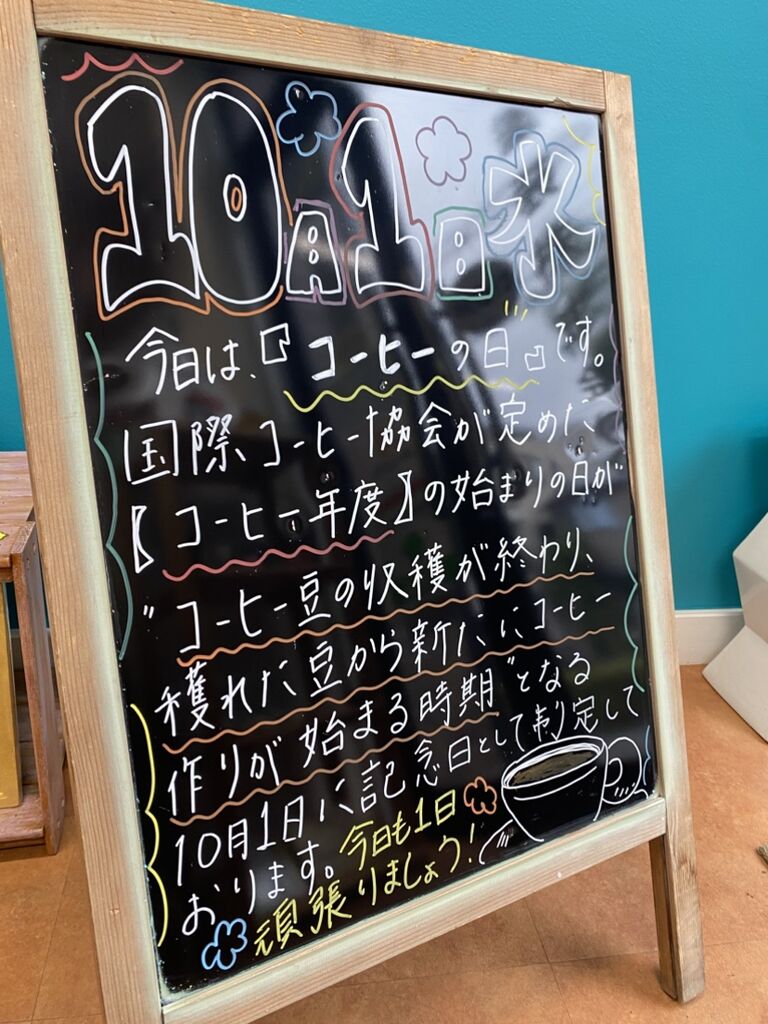 10月1日水
今日は、『コーヒーの日』です。
国際コーヒー協会が定めた
【コーヒー年度】の始まりの日が
"コーヒー豆の収穫が終わり、
穫れた豆から新たにコーヒー
作りが始まる時期"となる
10月1日に記念日として制定して
おります。今日も1日
頑張りましょう!